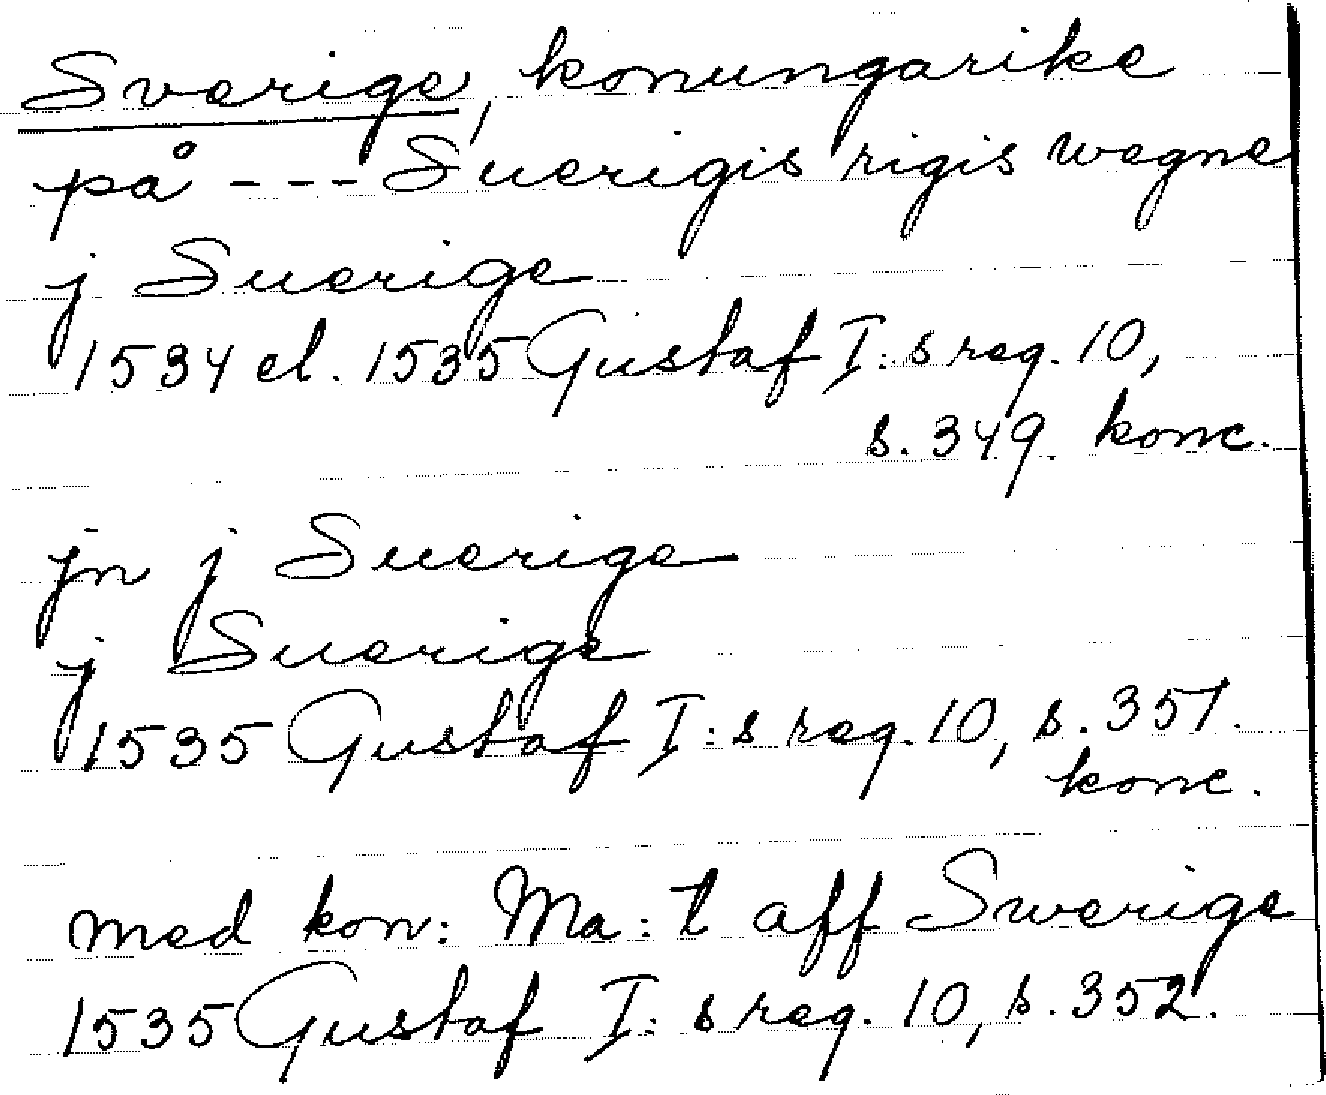 Sverige, konungarike
på --- Suerigis rigis wegne
j Suerige
1534 el. 1535 Gustaf I:s reg. 10,
s. 349. konc.
jn j Suerige
j Suerige
1535 Gustaf I:s reg. 10, s. 351.
konc.
med kon: Ma:t aff Swerige
1535 Gustaf I:s reg. 10, s. 352.